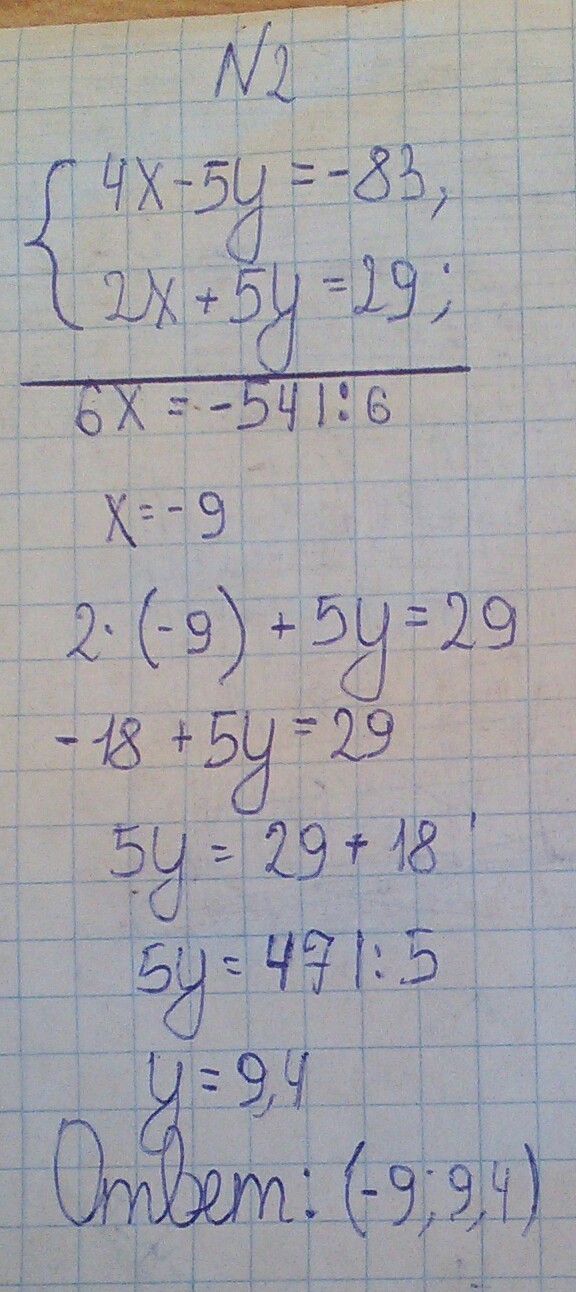 N2
4x-5y=-83,
2x+5y=29;
6x=-54|:6
x=-9
2·(-9)+5y=29
-18+5y=29
5y=29+18
5y=47|:5
y=9,4
Ответ: (-9;9,4)